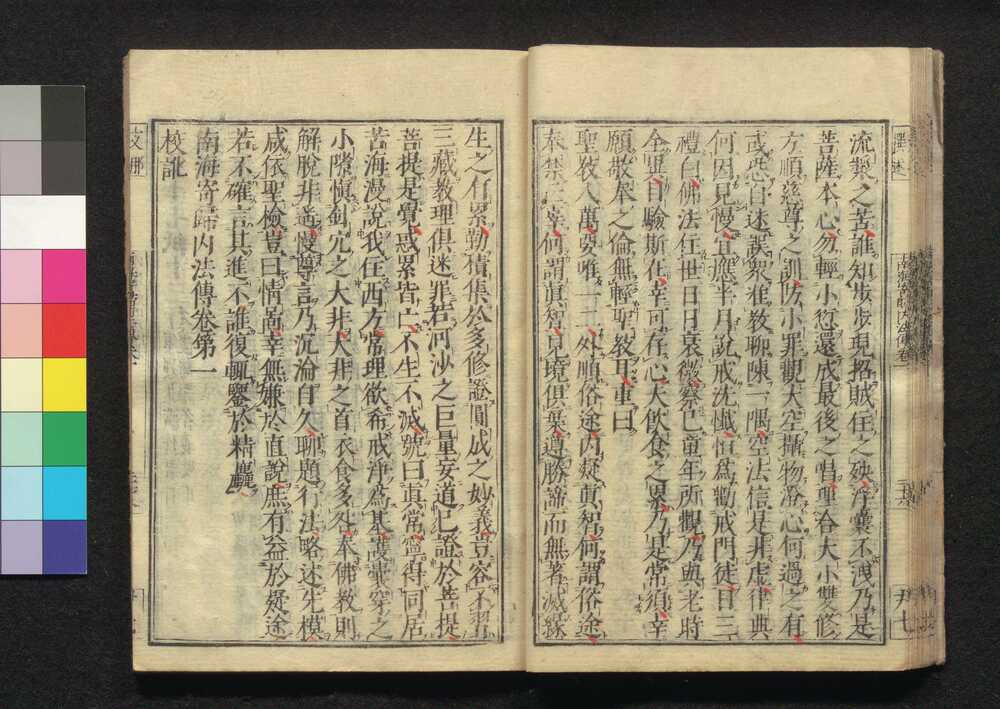 流裂之苦誰知步步現招賊住之殃浮囊不洩乃是
菩薩本心勿輕小愆還成最後之唱理合大小雙修
方順慈尊之訓防小罪觀大空攝物澄心何過之有
或恐自迷誤眾准教聊陳一隅空法信是非虛律典
何因見慢宜應半月說戒洗懺恒為勸戒門徒日三
禮白佛法住世日日衰微察己童年所觀乃與老時
全異目驗斯在幸可存心夫飲食之累乃是常須幸
願敬奉之倫無輕聖教耳重曰
聖教八萬要唯一二外順俗途內凝真智何謂俗途
奉禁亡辜何謂真智見境俱棄遵勝諦而無著滅緣
生之有累勤積集於多修證圓成之妙義豈容不習
三藏教理俱迷罪若河沙之巨量妄道已證於菩提
菩提是覺惑累皆亡不生不滅號曰真常寧得同居
苦海漫說我住西方常理欲希戒淨為基護囊穿之
小隙慎針穴之大非大非之首衣食多咎奉佛教則
解脫非遙慢尊言乃沉淪自久聊題行法略述先模
咸依聖檢豈曰情圖幸無嫌於直說庶有益於疑途
若不確言其進不誰復輒鑒於精麤
南海寄歸內法傳卷第一
校訛